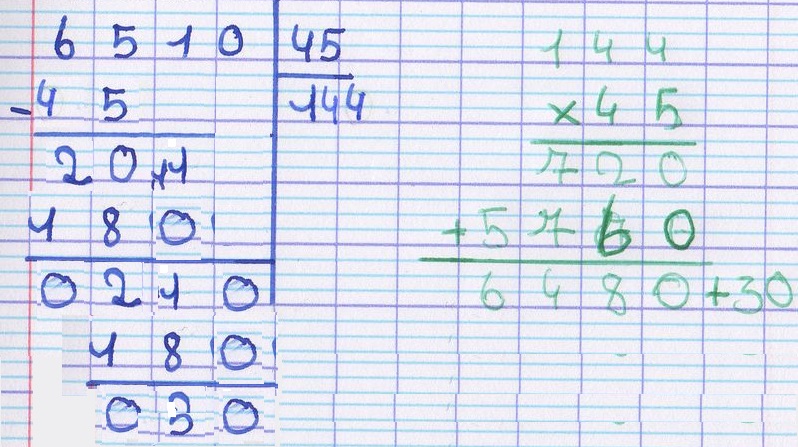 6 5 1 0 45
-4 5 144
2 0 1
1 8 0
0 2 1 0
1 8 0
0 3 0
1 4 4
x 4 5
7 2 0
+ 5 7 6 0
6 4 8 0 +30